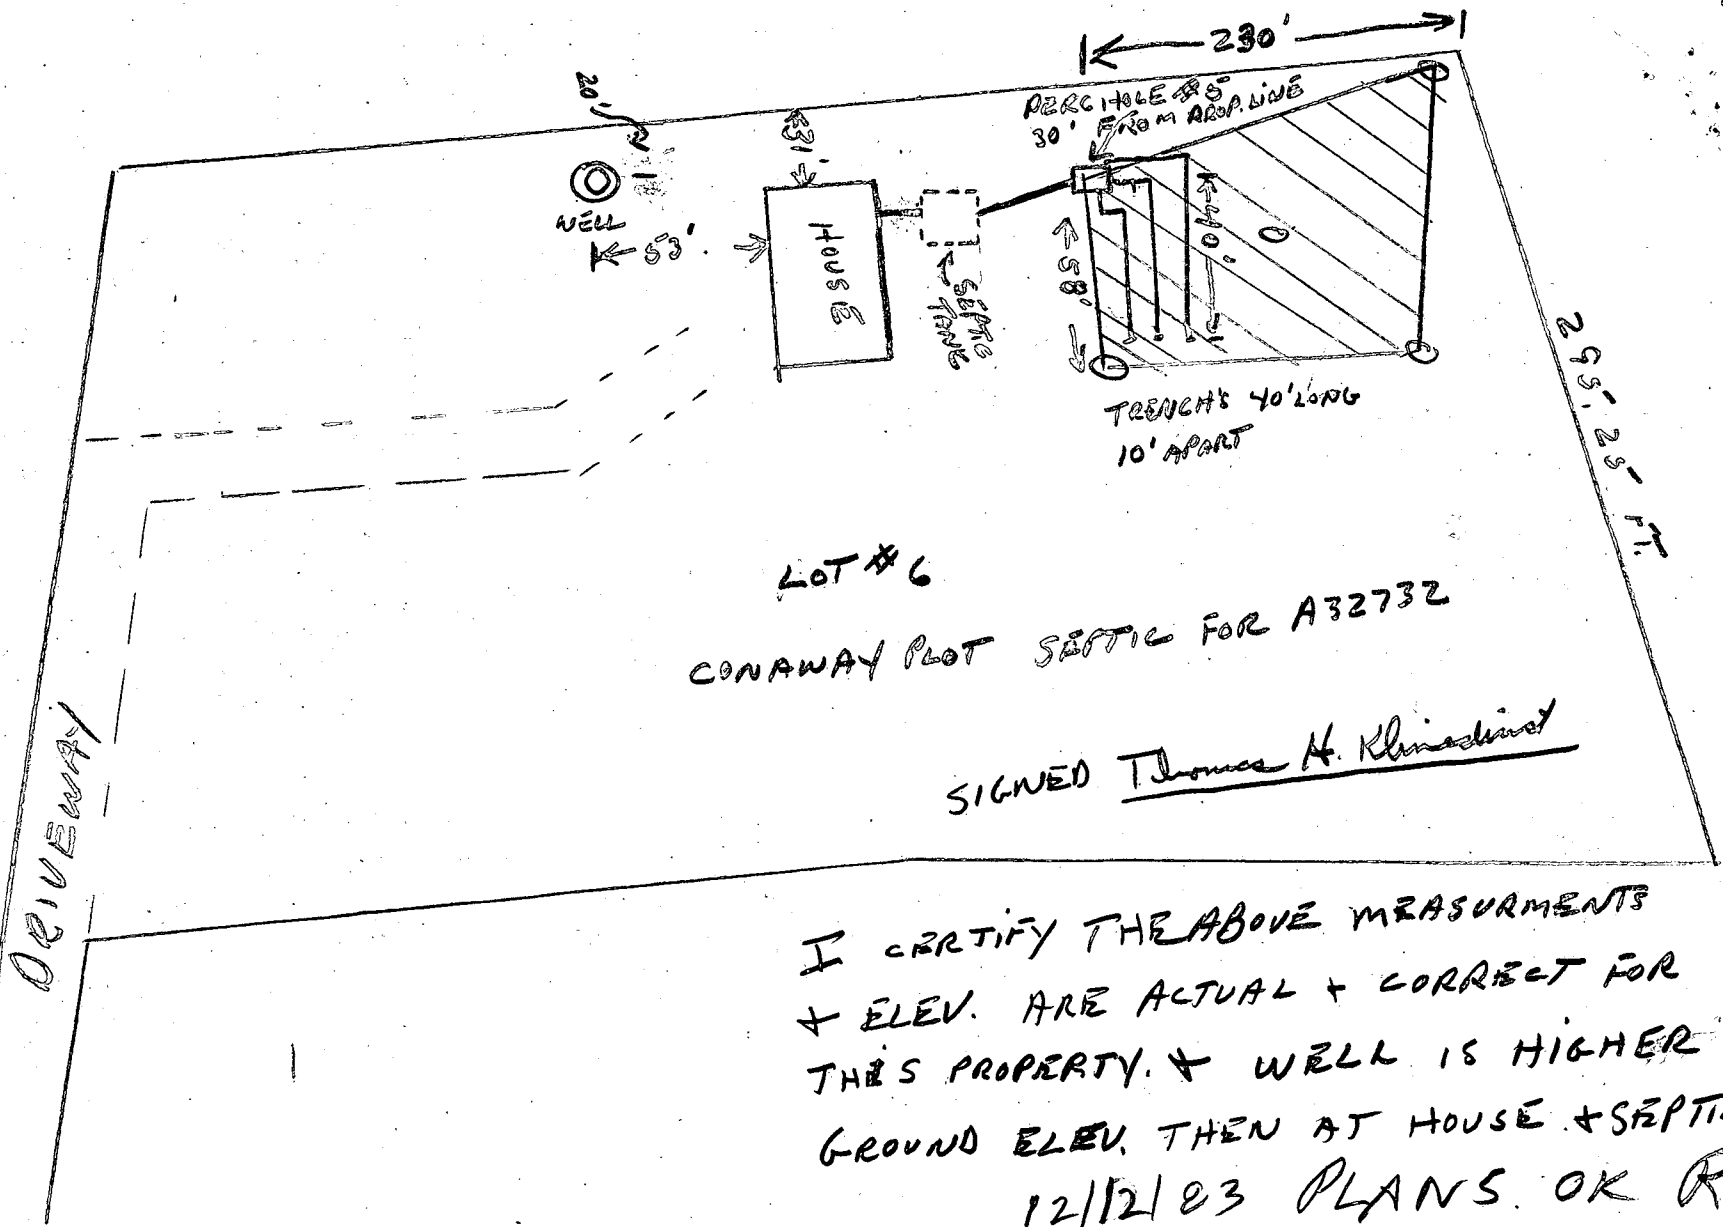 230'
20'
PERC HOLE #5
30' FROM PROP. LINE
31'
WELL
53'
HOUSE
SEPTIC
TANK
58'
40'
TRENCH'S 40' LONG
10' APART
295.25 FT.
LOT # 6
CONAWAY PLOT SEPTIC FOR A32732
SIGNED Thomas H. Klinedinst
DRIVEWAY
I CERTIFY THE ABOVE MEASURMENTS
+ ELEV. ARE ACTUAL + CORRECT FOR
THIS PROPERTY. + WELL IS HIGHER
GROUND ELEV. THEN AT HOUSE + SEPTI
12/12/83 PLANS OK R